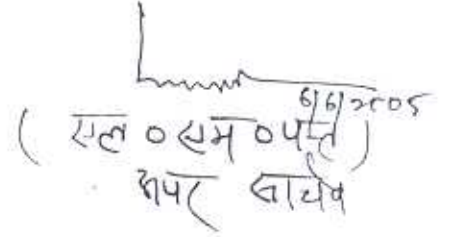 6/6/2005
( एल ० एम ० पन्त )
अपर सचिव